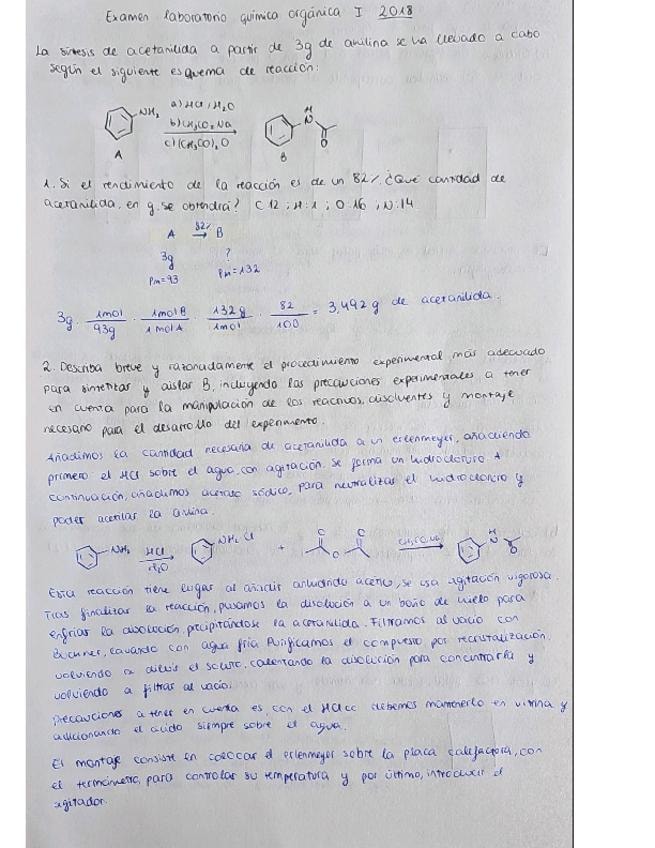 Examen laboratorio química orgánica I 2018
La síntesis de acetanilida a partir de 3g de anilina se ha llevado a cabo
según el siguiente esquema de reacción:
a) HCl, H₂O
NH₂ b) CH₃CO₂Na H N
c) (CH₃CO)₂O O
A B
1. Si el rendimiento de la reacción es de un 82% ¿Qué cantidad de
acetanilida, en g, se obtendrá? C 12 ; H:1 ; O:16 ; N:14
A 82% → B
3g ?
Pm=93 Pm=132
3g · 1mol/93g · 1molB/1molA · 132g/1mol · 82/100 = 3,492 g de acetanilida.
2. Describa breve y razonadamente el procedimiento experimental más adecuado
para sintetizar y aislar B, incluyendo las precauciones experimentales a tener
en cuenta para la manipulación de los reactivos, disolventes y montaje
necesario para el desarrollo del experimento.
Añadimos la cantidad necesaria de acetanilida a un erlenmeyer, añadiendo
primero el HCl sobre el agua, con agitación. Se forma un hidrocloruro. A
continuación, añadimos acetato sódico, para neutralizar el hidrocloruro y
poder acetilar la anilina.
NH₂ HCl H₂O NH₃ Cl + O O O → H N O
Esta reacción tiene lugar al añadir anhídrido acético, se usa agitación vigorosa.
Tras finalizar la reacción, pasamos la disolución a un baño de hielo para
enfriar la disolución, precipitándose la acetanilida. Filtramos al vacío con
Buchner, lavando con agua fría. Purificamos el compuesto por recristalización,
volviendo a diluir el soluto, calentando la disolución para concentrarla y
volviendo a filtrar al vacío.
Precauciones a tener en cuenta es, con el HCl cc debemos mantenerlo en vitrina y
adicionando el ácido siempre sobre el agua.
El montaje consiste en colocar el erlenmeyer sobre la placa calefactora, con
el termómetro, para controlar su temperatura y por último, introducir el
agitador.